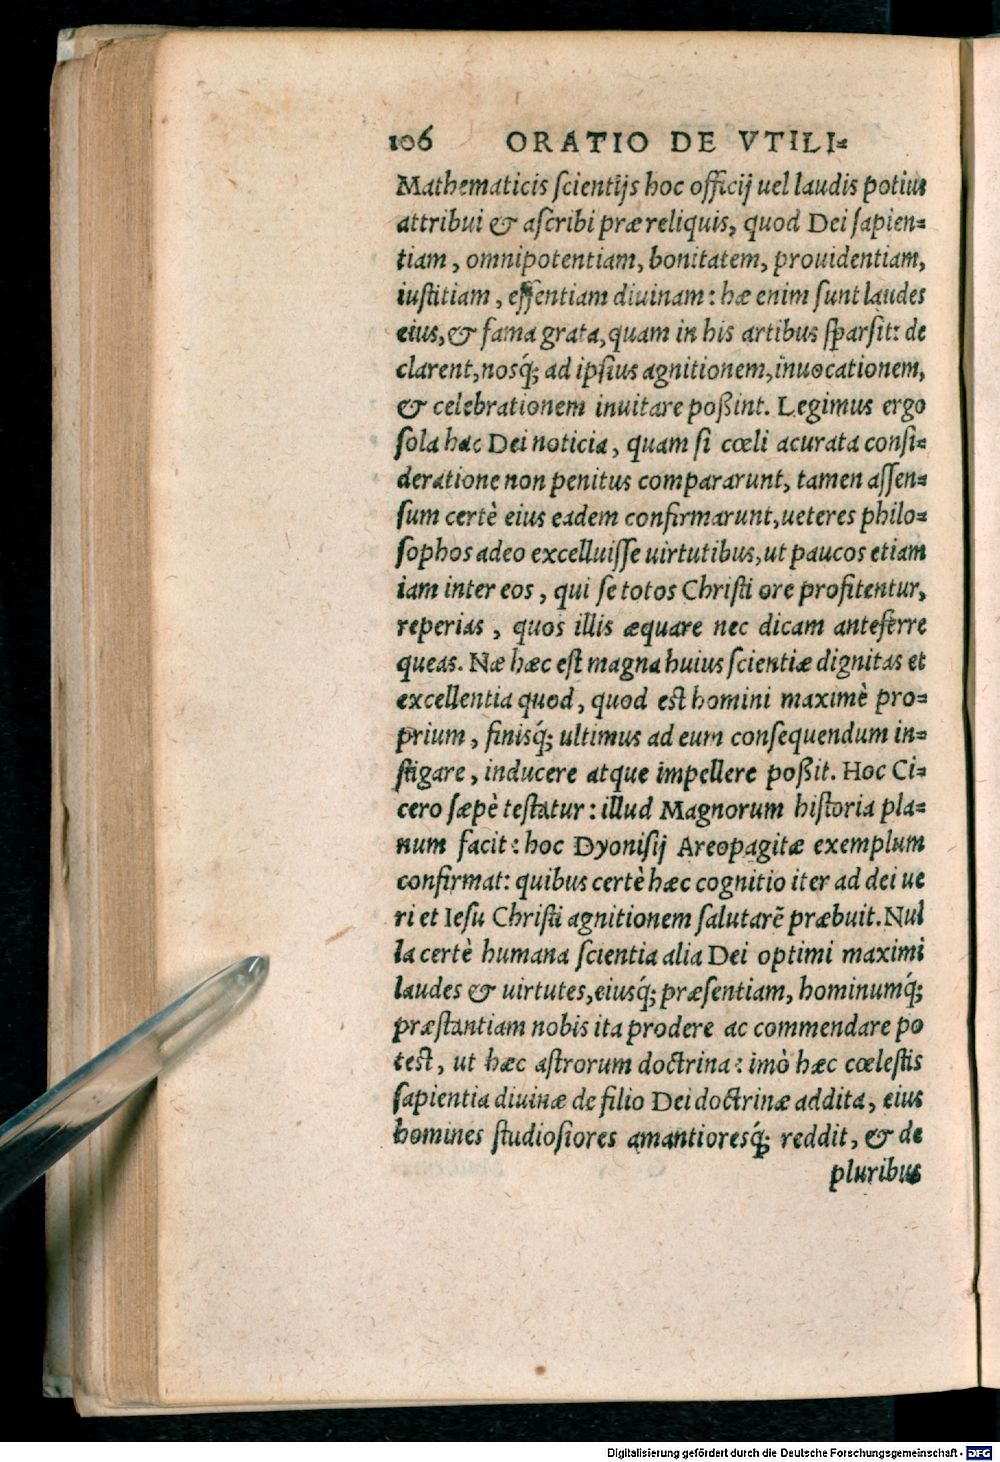 106 ORATIO DE VTILI-
Mathematicis scientijs hoc officij uel laudis potius
attribui & ascribi præ reliquis, quod Dei sapien-
tiam, omnipotentiam, bonitatem, prouidentiam,
iustitiam, essentiam diuinam: hæ enim sunt laudes
eius, & fama grata, quam in his artibus sparsit: de
clarent, nosq́; ad ipsius agnitionem, inuocationem,
& celebrationem inuitare poßint. Legimus ergo
sola hac Dei noticia, quam si cœli acurata consi-
deratione non penitus compararunt, tamen assen-
sum certè eius eadem confirmarunt, ueteres philo-
sophos adeo excelluisse uirtutibus, ut paucos etiam
iam inter eos, qui se totos Christi ore profitentur,
reperias, quos illis æquare nec dicam anteferre
queas. Næ hæc est magna huius scientiæ dignitas et
excellentia quod, quod est homini maximè pro-
prium, finisq́; ultimus ad eum consequendum in-
stigare, inducere atque impellere poßit. Hoc Ci-
cero sæpè testatur: illud Magnorum historia pla-
num facit: hoc Dyonisij Areopagitæ exemplum
confirmat: quibus certè hæc cognitio iter ad dei ue
ri et Iesu Christi agnitionem salutarē præbuit. Nul
la certè humana scientia alia Dei optimi maximi
laudes & uirtutes, eiusq́; præsentiam, hominumq́;
præstantiam nobis ita prodere ac commendare po
test, ut hæc astrorum doctrina: imò hæc cœlestis
sapientia diuinæ de filio Dei doctrinæ addita, eius
homines studiosiores amantioresq́; reddit, & de
pluribus
Digitalisierung gefördert durch die Deutsche Forschungsgemeinschaft - DFG